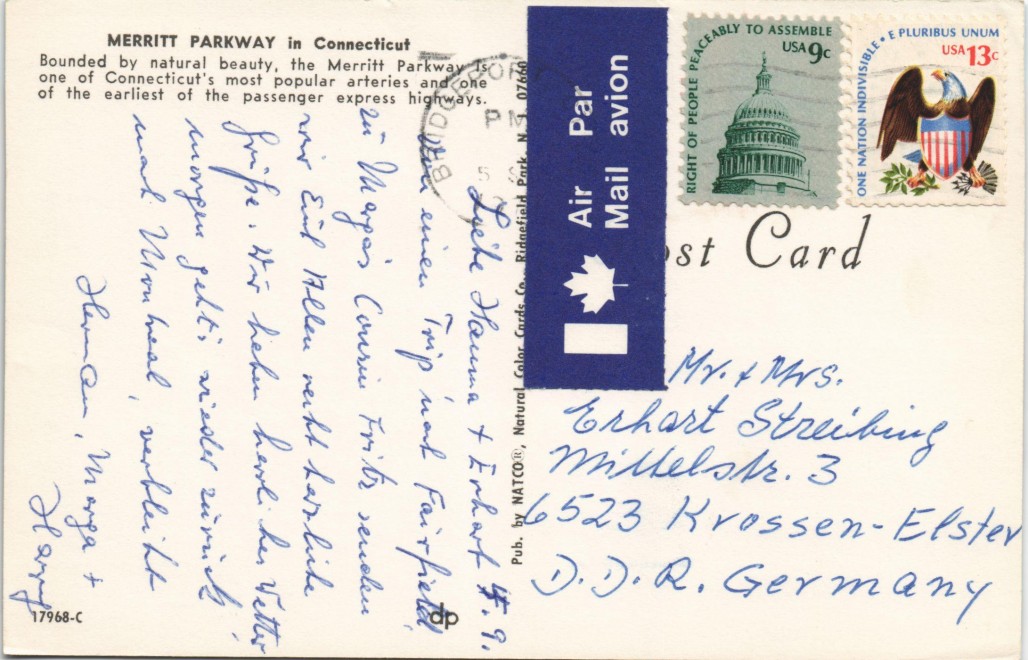 MERRITT PARKWAY in Connecticut
Bounded by natural beauty, the Merritt Parkway is
one of Connecticut's most popular arteries and one
of the earliest of the passenger express highways.
BRIDGEPORT
PM
5 S
Air Par
Mail avion
RIGHT OF PEOPLE PEACEABLY TO ASSEMBLE
USA 9c
ONE NATION INDIVISIBLE • E PLURIBUS UNUM
USA 13c
ost Card
Liebe Hanna + Erhart 4.9.
einen Trip nach Fairfield,
zu Margas Cousin Fritz senden
wir Euch Allen recht herzliche
Grüße. Wir haben herrliches Wetter
morgen geht's wieder zurück
nach Montreal, verbleibt
Herman, Marga +
Harry
Pub. by NATCO®, Natural Color Cards Co., Ridgefield Park, N.J. 07660
Mr. + Mrs.
Erhart Streibing
Mittelstr. 3
6523 Krossen-Elster
D.D.R. Germany
17968-C
dp